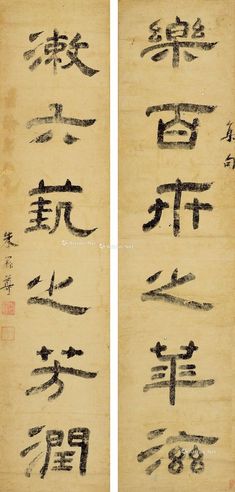 樂百卉之華滋
集句
漱六蓺之芳潤
朱彝尊